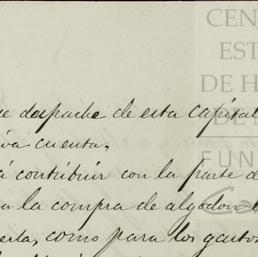 despache de esta capital
cuenta.
contribuir con la parte d
la compra de algodon
como para los gastos
CEN
EST
DE H
DE
FUN